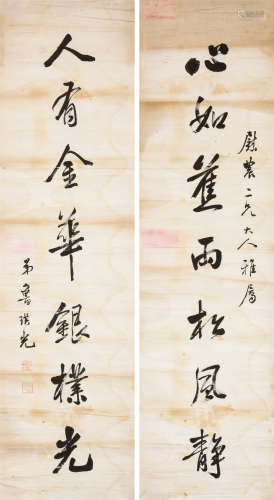 慰農二兄大人雅屬
心如蕉雨松風静
人有金華銀樸光
弟魯琪光